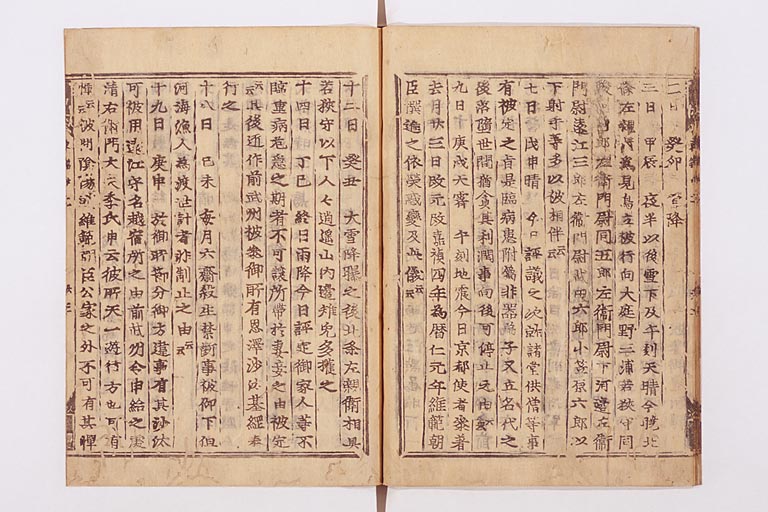 二日 癸卯 雪降
三日 甲辰 夜半以後雪下及午刻天晴今晩北
條左親衛爲見鳥立被行向大庭野三浦若狹守同
四郎左衛門尉同五郎左衛門尉下河邊左衛
門尉遠江三郎左衛門尉武田六郎小笠原六郎以
下射手等多以被相伴云云
七日 戊申晴 今日評議之次諸堂供僧等事
有被定之旨是臨病患附屬非器弟子又立名代之
後落墮世間猶貪其利潤事向後可停止之由云云
九日 庚戌天霽 午刻地震今日京都使者參著
去月廿三日改元改嘉禎四年爲暦仁元年維範朝
臣撰進之依熒惑變及此儀云云
十二日 癸丑 大雪降之後北条左親衛相具
若狹守以下人々逍遥山内邊雉兎多獲之
十四日 丁巳 終日雨降今日評定御家人等不
臨重病危急之期者不可讓所帶於妻妾之由被定
云云其後近作前武州被參御所有恩澤沙汰基綱奉
行之
十八日 己未 毎月六齋殺生禁斷事被仰下但
河海漁人爲渡世計者非制止之由云云
十九日 庚申 於御所御分御方違事有其沙汰
可被用遠江守名越宿所之由前武州令申給之處
清右衛門大夫季氏申云彼所天一遊行方也可有
憚云云 陰陽師維範朝臣公家之外不可有其憚